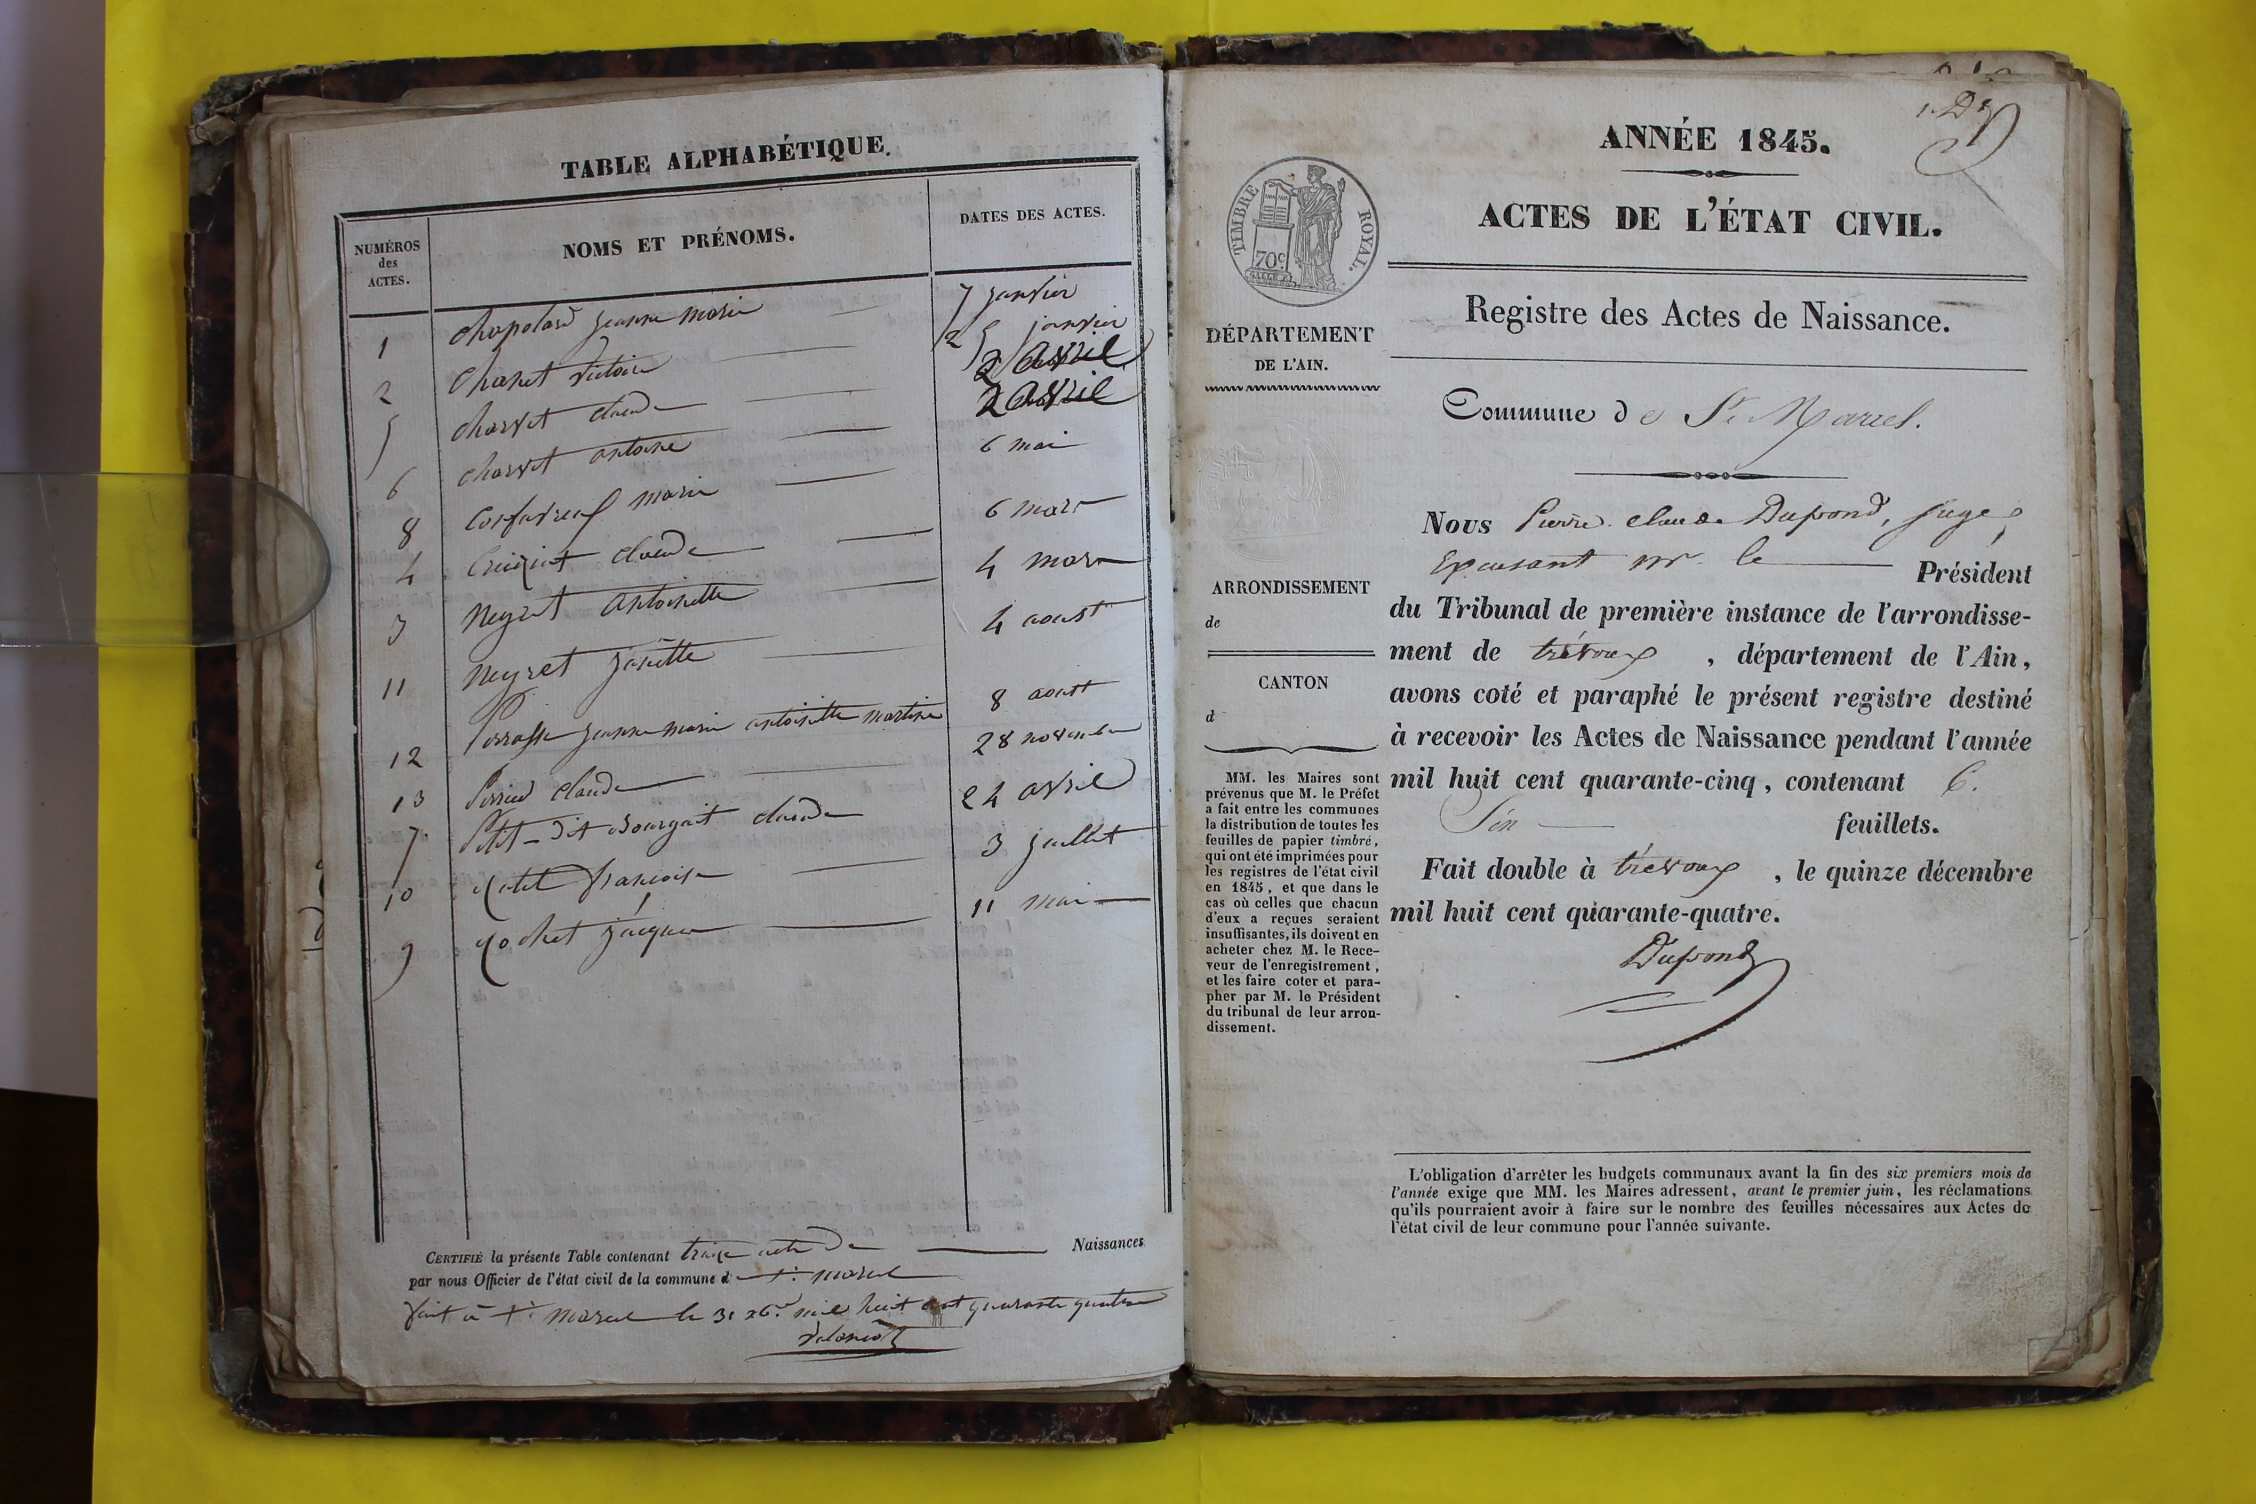 TABLE ALPHABÉTIQUE.
NUMÉROS des ACTES.
NOMS ET PRÉNOMS.
DATES DES ACTES.
1 chapolard jeanne marie 7 janvier
2 Chanet victoire 25 janvier
5 charvet claude 2 avril
6 charvet antoine 2 avril
8 Confavreux marie 6 mai
4 claude 6 mars
3 Neyret antoinette 4 mars
11 Neyret josette 4 aoust
12 jeanne marie antoinette martine 8 aoust
13 Perrieu claude 28 novembre
7 Petit-dit claude 24 avril
10 françoise 3 juillet
9 Rochet jacques 11 mai
CERTIFIÉ la présente Table contenant treize acte de Naissances
par nous Officier de l'état civil de la commune d St. marcel
fait à St. marcel le 31 xbre mil huit cent quarante quatre
1. Dd
ANNÉE 1845.
ACTES DE L'ÉTAT CIVIL.
TIMBRE ROYAL.
70c
Registre des Actes de Naissance.
DÉPARTEMENT
DE L'AIN.
Commune de St. Marcel.
Nous Pierre Claude Dupond, Juge,
Excusant mr. le Président
ARRONDISSEMENT
de
CANTON
d
du Tribunal de première instance de l'arrondisse-
ment de trévoux, département de l'Ain,
avons coté et paraphé le présent registre destiné
à recevoir les Actes de Naissance pendant l'année
mil huit cent quarante-cinq, contenant 6.
Six feuillets.
Fait double à trévoux, le quinze décembre
mil huit cent quarante-quatre.
Dupond
MM. les Maires sont
prévenus que M. le Préfet
a fait entre les communes
la distribution de toutes les
feuilles de papier timbré,
qui ont été imprimées pour
les registres de l'état civil
en 1845, et que dans le
cas où celles que chacun
d'eux a reçues seraient
insuffisantes, ils doivent en
acheter chez M. le Rece-
veur de l'enregistrement,
et les faire coter et para-
pher par M. le Président
du tribunal de leur arron-
dissement.
L'obligation d'arrêter les budgets communaux avant la fin des six premiers mois de
l'année exige que MM. les Maires adressent, avant le premier juin, les réclamations
qu'ils pourraient avoir à faire sur le nombre des feuilles nécessaires aux Actes de
l'état civil de leur commune pour l'année suivante.